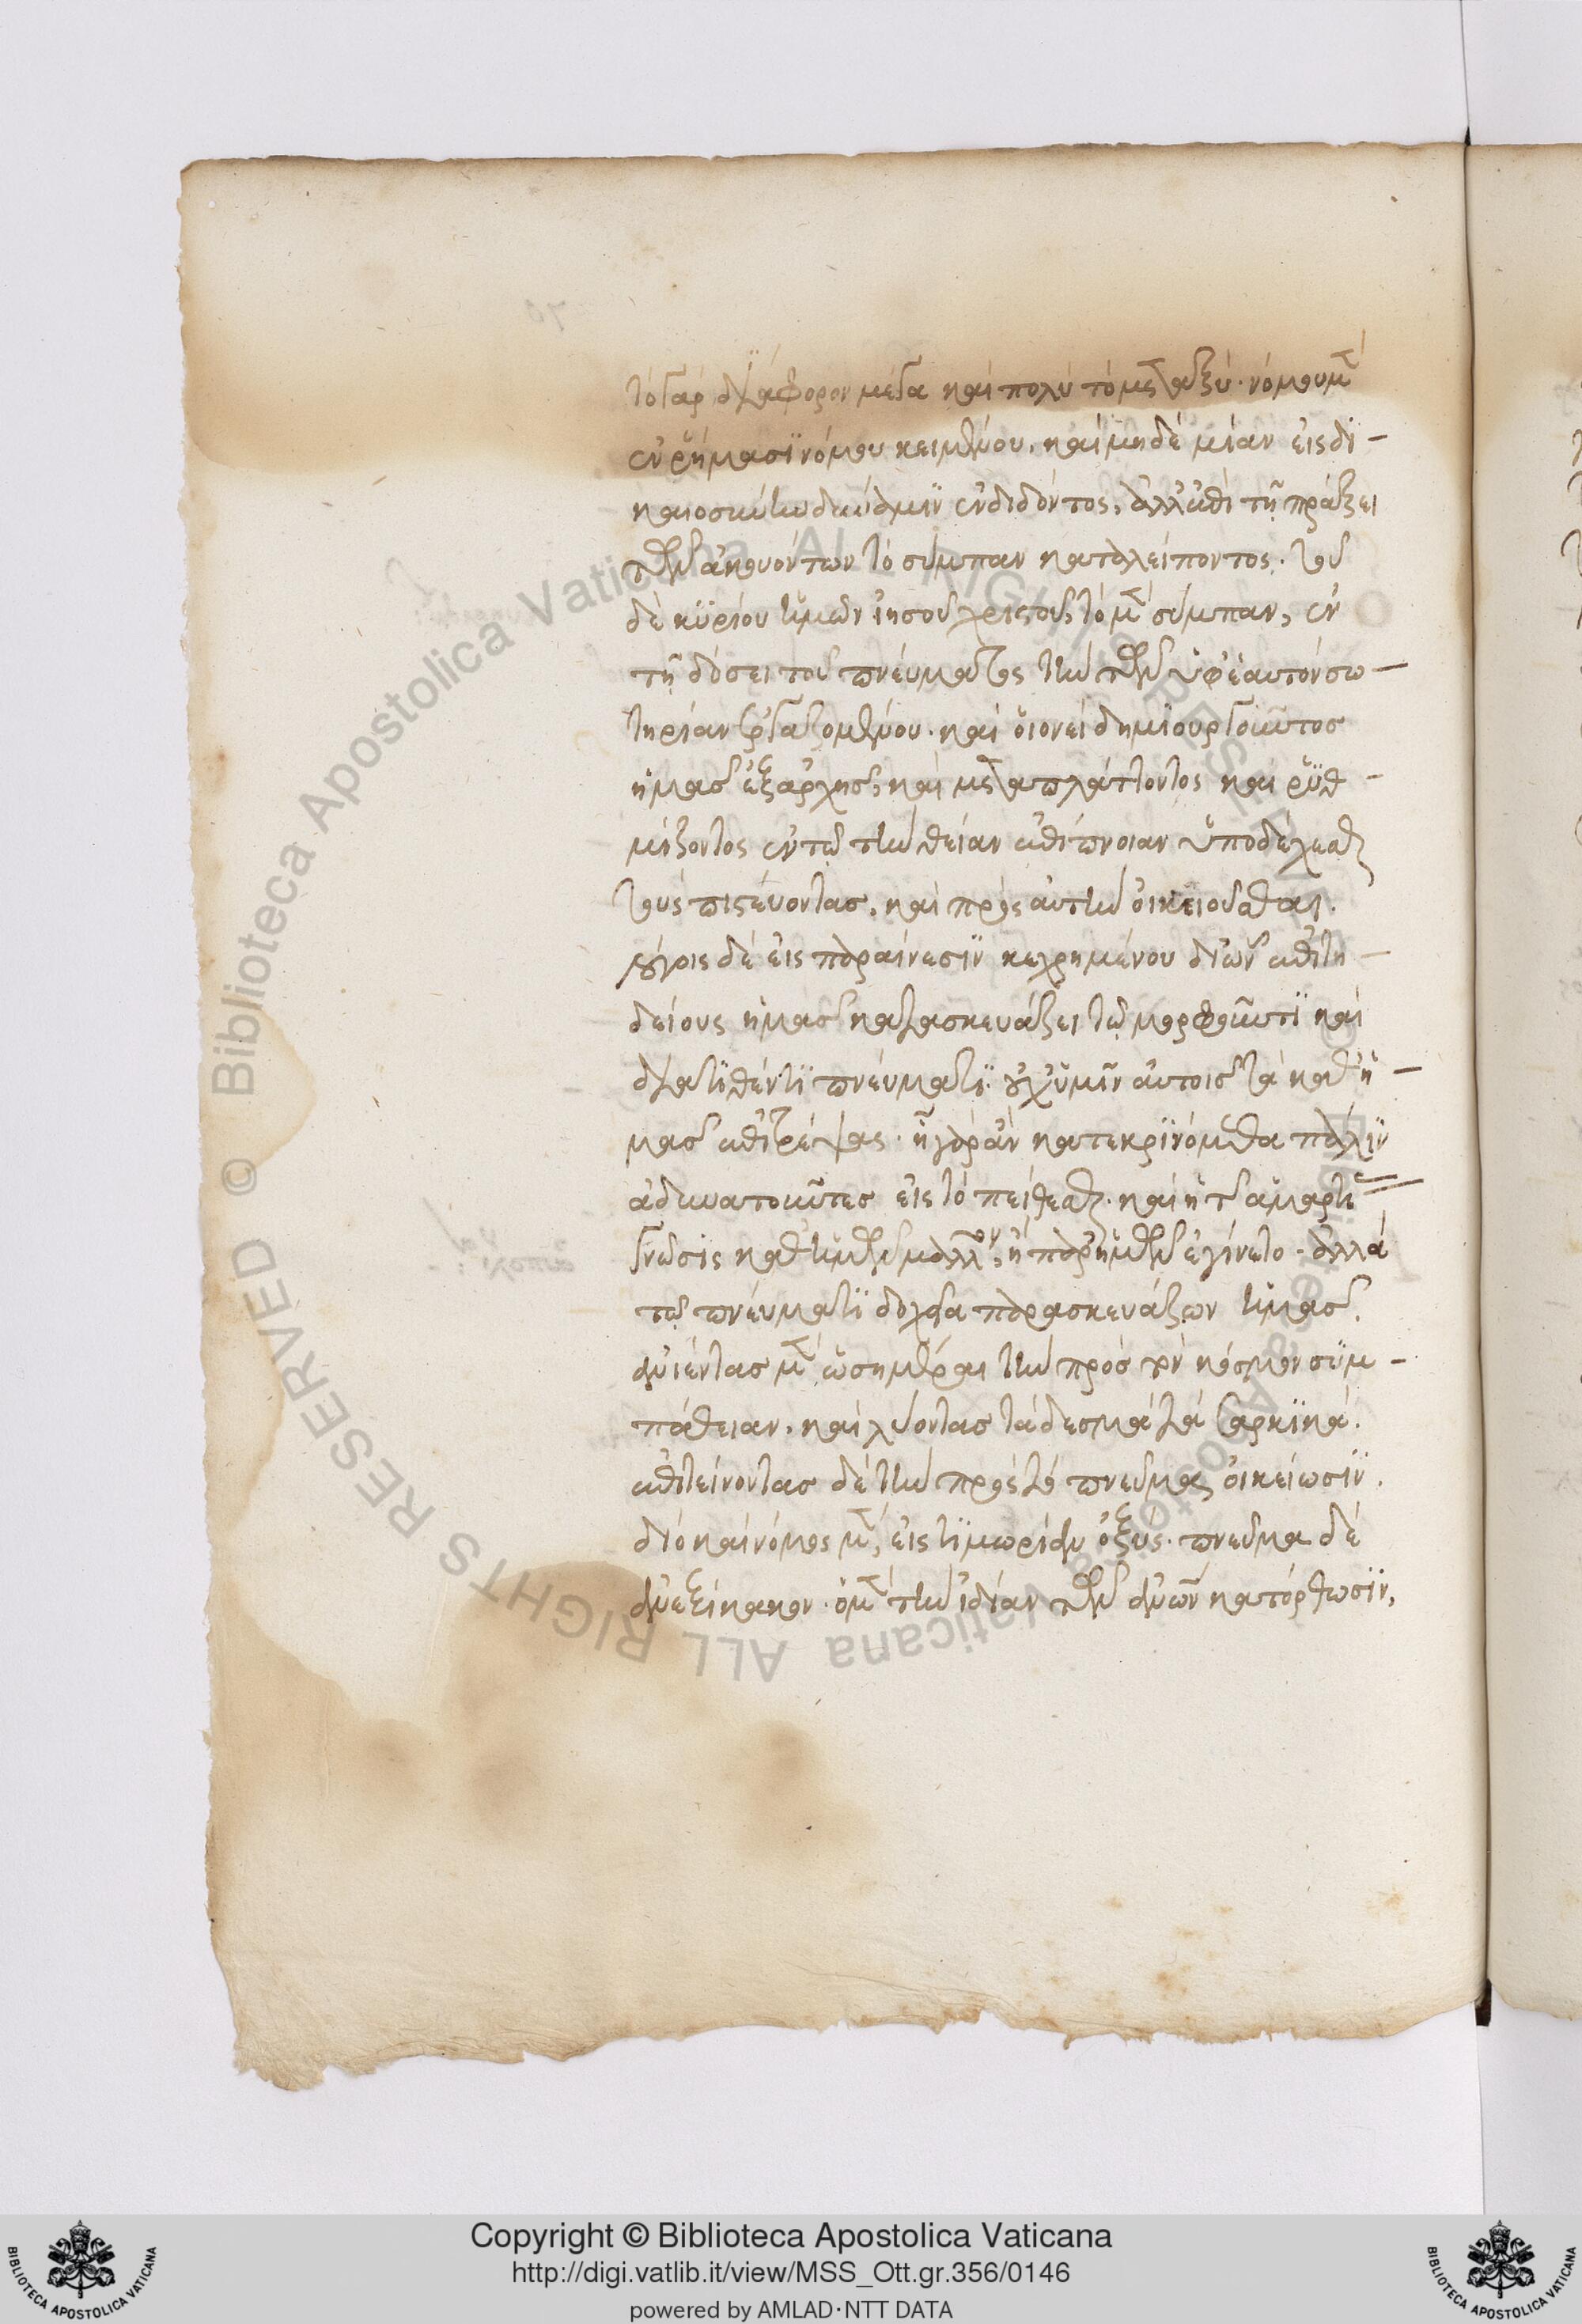 τὸ γὰρ διάφορον μέγα καὶ πολὺ τὸ μεταξύ· νόμου μὲν
ἐν ῥήμασϊ νόμου κειμένου, καὶ μηδὲ μίαν εἰς δϊ-
καιοσύνην δύναμϊν ἐνδιδόντος, ἀλλ' ἐπὶ τῇ πράξει
τῶν ἀκουόντων τὸ σύμπαν καταλείποντος. τοῦ
δὲ κϋρίου ἡμῶν ἰησοῦ χριστοῦ, τὸ μὲν σύμπαν, ἐν
τῇ δόσει τοῦ πνεύματος τὴν τῶν ὑφ' ἑαυτὸν σω-
τηρίαν ἐργαζομένου· καὶ οἱονεὶ δημιουργοῦντος
ἡμᾶς ἐξαρχῆς, καὶ μεταπλάττοντος καὶ ῥϋθ-
μίζοντος ἐν τῷ τὴν θείαν ἐπίπνοιαν ὑποδέχεσθαι
τοὺς πιστεύοντας, καὶ πρὸς αὐτὴν οἰκειοῦσθαι.
λόγοις δὲ εἰς παραίνεσϊν κεχρημένου δι' ὧν ἐπιτη-
δείους ἡμᾶς κατασκευάζει τῷ μορφοῦντϊ καὶ
διατϊθέντϊ πνεύματϊ. οὐχ' ὑμῖν αὐτοῖς τὰ καθ' ἡ-
μᾶς ἐπιτρέψας. ἦ γὰρ ἂν κατεκρϊνόμεθα πάλϊν
ἀδυνατοῦντες εἰς τὸ πείθεσθαι· καὶ ἡ τῶν ἁμαρτιῶν
γνῶσϊς καθ' ἡμῶν μᾶλλον, ἢ παρ' ἡμῶν ἐγίνετο. ἀλλὰ
τῷ πνεύματϊ δοχεῖα παρασκευάζων ἡμᾶς,
ἀνιέντας μὲν ὁσημέραι τὴν πρὸς τὸν κόσμον σϋμ-
πάθειαν, καὶ λύοντας τὰ δεσμὰ τὰ σαρκϊκά.
ἐπιτείνοντας δὲ τὴν πρὸς τὸ πνεῦμα οἰκείωσϊν.
διὸ καὶ νόμος μὲν, εἰς τϊμωρίαν ὀξύς. πνεῦμα δὲ
ἀνεξίκακον. ὁ μὲν τὴν ἰδίαν τῶν ἀνων κατόρθωσϊν,
Copyright © Biblioteca Apostolica Vaticana
http://digi.vatlib.it/view/MSS_Ott.gr.356/0146
powered by AMLAD·NTT DATA